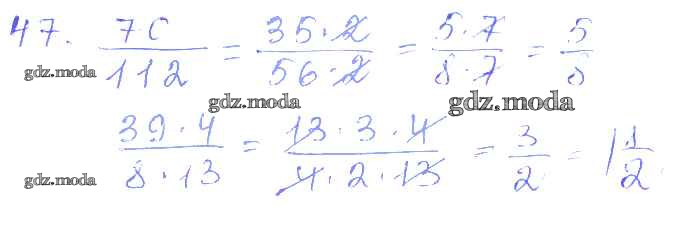 47. 70/112 = 35·2/56·2 = 5·7/8·7 = 5/8
gdz.moda gdz.moda gdz.moda
39·4/8·13 = 13·3·4/4·2·13 = 3/2 = 1 1/2
gdz.moda